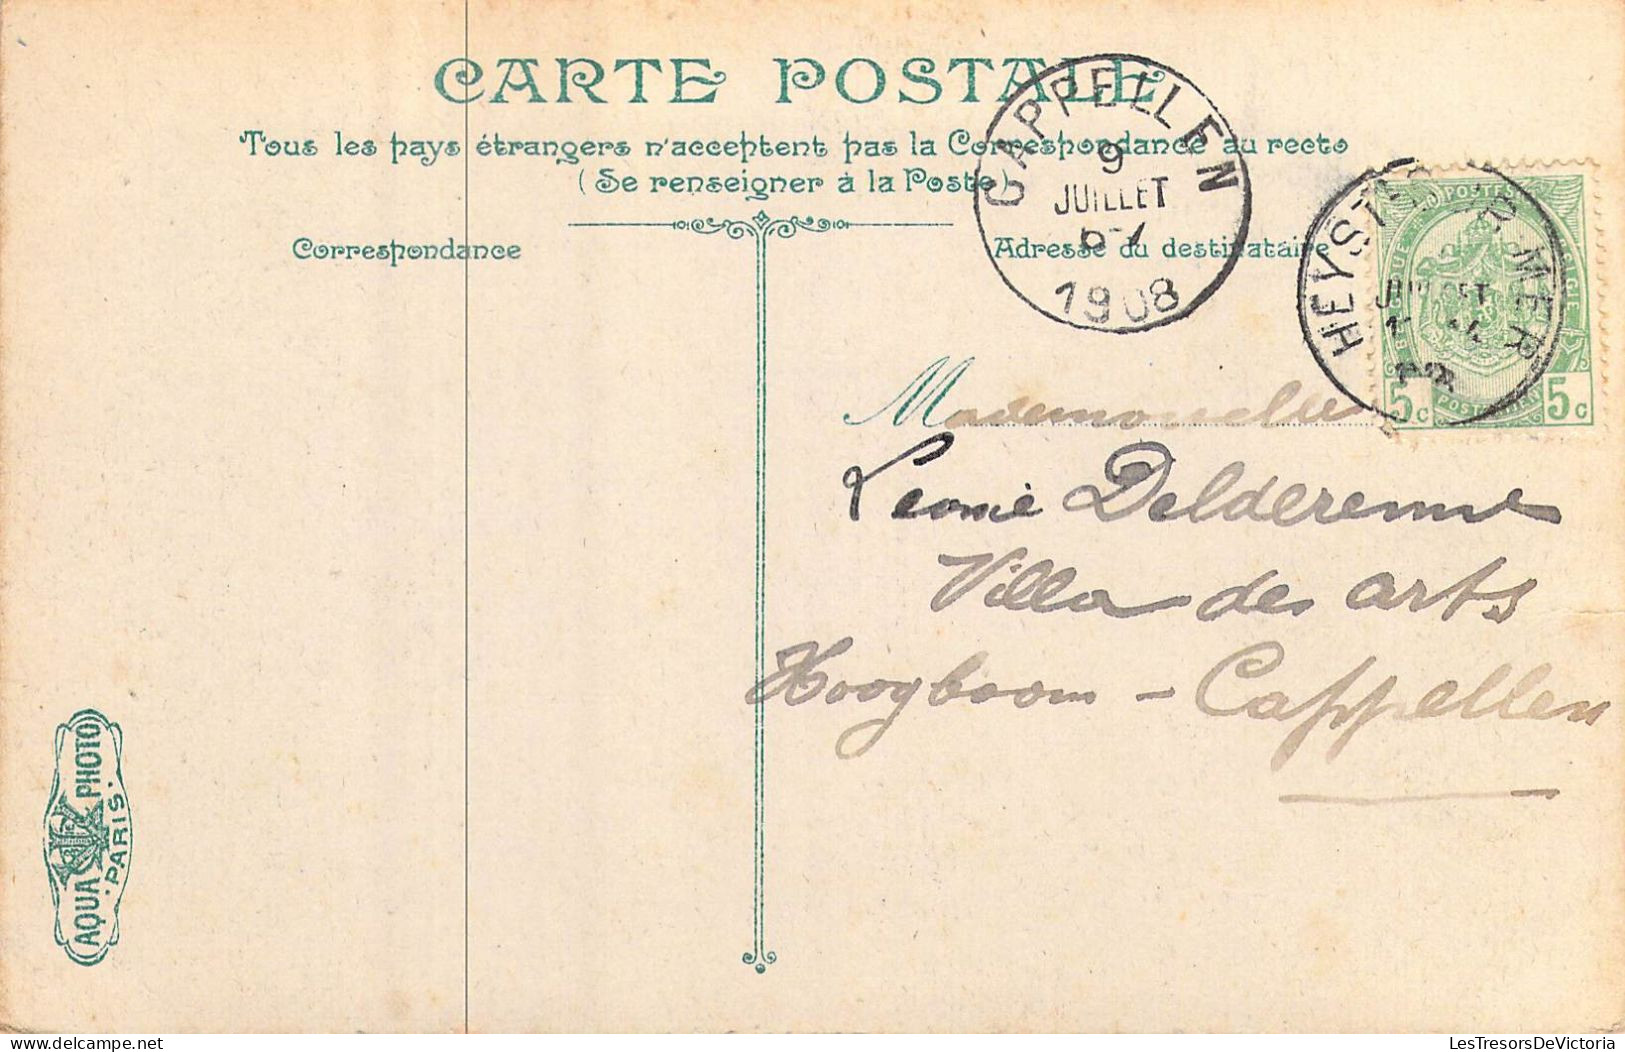 CARTE POSTALE
Tous les pays étrangers n'acceptent pas la Correspondance au recto
(Se renseigner à la Poste)
Correspondance
Adresse du destinataire
CAPPELLEN
9
JUILLET
6-7
1908
HEYST-SUR-MER
JUILLET
POSTES
BELGIQUE
BELGIE
5c
POSTERIJEN
5c
Mademoiselle
Leonie Delderenne
Villa des arts
Hoogboom - Cappellen
AQUA PHOTO
PARIS
LesTresorsDeVictoria
delcampe.net